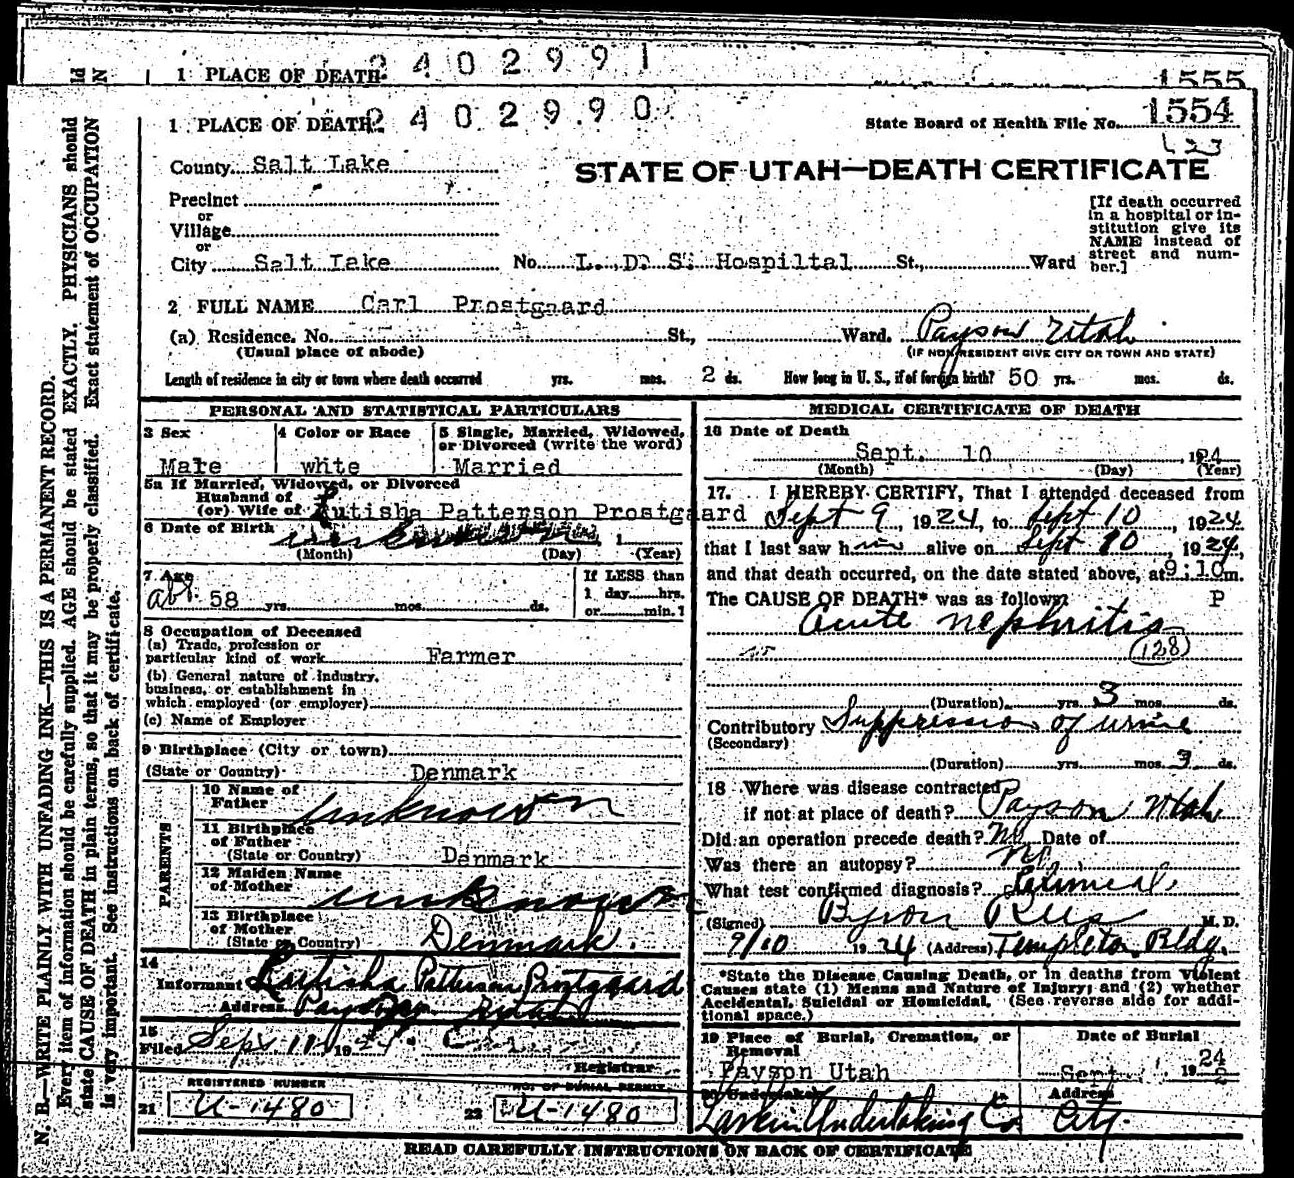 1 PLACE OF DEATH
2402991
1555
1 PLACE OF DEATH
2402990
State Board of Health File No. 1554
123
STATE OF UTAH—DEATH CERTIFICATE
County Salt Lake
Precinct
or
Village
or
City Salt Lake No. L. D. S. Hospiltal St., Ward
[If death occurred
in a hospital or in-
stitution give its
NAME instead of
street and num-
ber.]
2 FULL NAME Carl Prostgaard
(a) Residence. No. St., Ward. Payson Utah
(Usual place of abode) (IF NONRESIDENT GIVE CITY OR TOWN AND STATE)
Length of residence in city or town where death occurred yrs. mos. 2 ds. How long in U. S., if of foreign birth? 50 yrs. mos. ds.
PERSONAL AND STATISTICAL PARTICULARS
3 Sex
Male
4 Color or Race
white
5 Single, Married, Widowed,
or Divorced (write the word)
Married
5a If Married, Widowed, or Divorced
Husband of
(or) Wife of Lutisha Patterson Prostgaard
6 Date of Birth unknown 1
(Month) (Day) (Year)
7 Age
abt. 58 yrs. mos. ds.
If LESS than
1 day hrs.
or min.
8 Occupation of Deceased
(a) Trade, profession or
particular kind of work Farmer
(b) General nature of industry,
business, or establishment in
which employed (or employer)
(c) Name of Employer
9 Birthplace (City or town)
(State or Country) Denmark
PARENTS
10 Name of
Father unknown
11 Birthplace
of Father
(State or Country) Denmark
12 Maiden Name
of Mother unknown
13 Birthplace
of Mother
(State or Country) Denmark.
14
Informant Lutisha Patterson Prostgaard
Address Payson Utah
15
Filed Sept 11 1924
Registrar
REGISTERED NUMBER
21 U-1480
NO. OF BURIAL PERMIT
22 U-1480
MEDICAL CERTIFICATE OF DEATH
16 Date of Death
Sept. 10 1924
(Month) (Day) (Year)
17. I HEREBY CERTIFY, That I attended deceased from
Sept 9, 1924, to Sept 10, 1924
that I last saw him alive on Sept 10, 1924,
and that death occurred, on the date stated above, at 9:10 m.
P
The CAUSE OF DEATH* was as follows:
Acute nephritis
(128)
(Duration) yrs. 3 mos. ds.
Contributory Suppression of urine
(Secondary)
(Duration) yrs. mos. 3 ds.
18 Where was disease contracted
if not at place of death? Payson Utah
Did an operation precede death? No Date of
Was there an autopsy? No
What test confirmed diagnosis? Clinical.
(Signed) Byron Rees M. D.
9/10 1924 (Address) Templeton Bldg.
*State the Disease Causing Death, or in deaths from Violent
Causes state (1) Means and Nature of Injury; and (2) whether
Accidental, Suicidal or Homicidal. (See reverse side for addi-
tional space.)
19 Place of Burial, Cremation, or
Removal
Payson Utah
Date of Burial
Sept 1924
20 Undertaker
Larkin Undertaking Co
Address
City.
READ CAREFULLY INSTRUCTIONS ON BACK OF CERTIFICATE
N. B.—WRITE PLAINLY WITH UNFADING INK—THIS IS A PERMANENT RECORD.
Every item of information should be carefully supplied. AGE should be stated EXACTLY. PHYSICIANS should
state CAUSE OF DEATH in plain terms, so that it may be properly classified. Exact statement of OCCUPATION
is very important. See instructions on back of certificate.